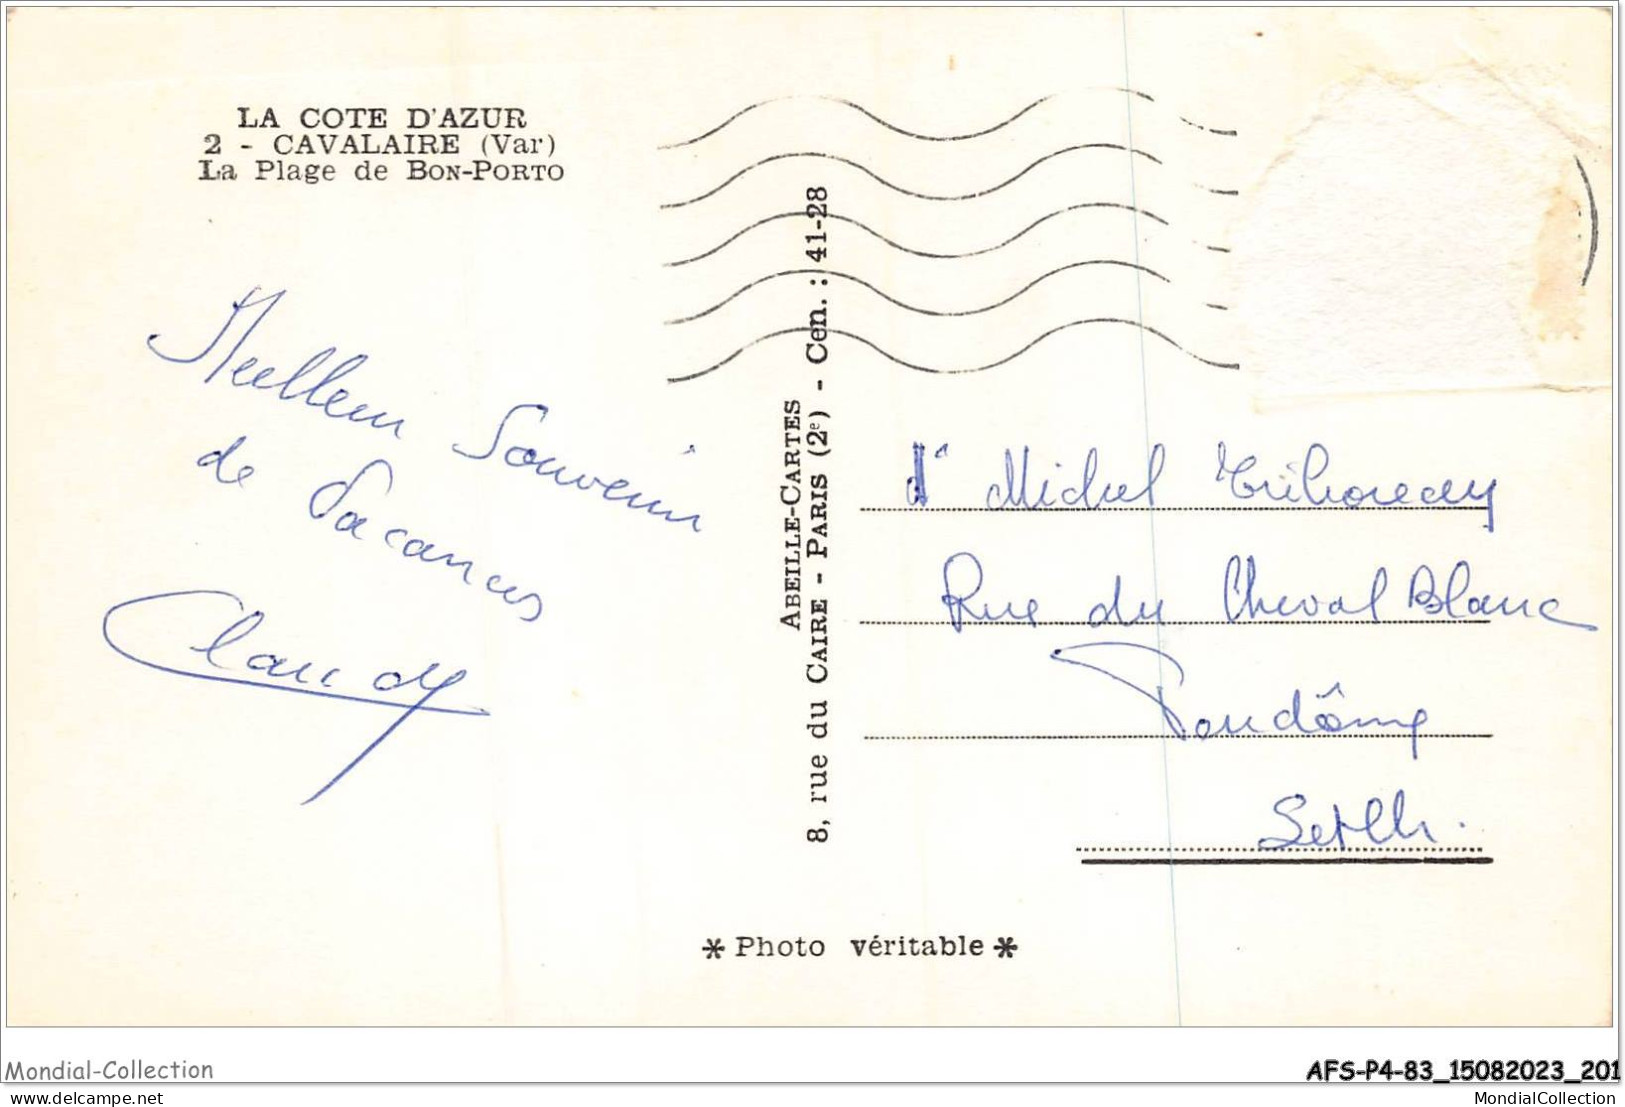 LA COTE D'AZUR
2 - CAVALAIRE (Var)
La Plage de BON-PORTO
Meilleur Souvenir
de Vacances
Claudy
ABEILLE-CARTES
8, rue du CAIRE - PARIS (2e) - Cen. : 41-28
Michel
Rue du Cheval Blanc
Vendôme
* Photo véritable *
Mondial-Collection
AFS-P4-83_15082023_201
delcampe.net
MondialCollection